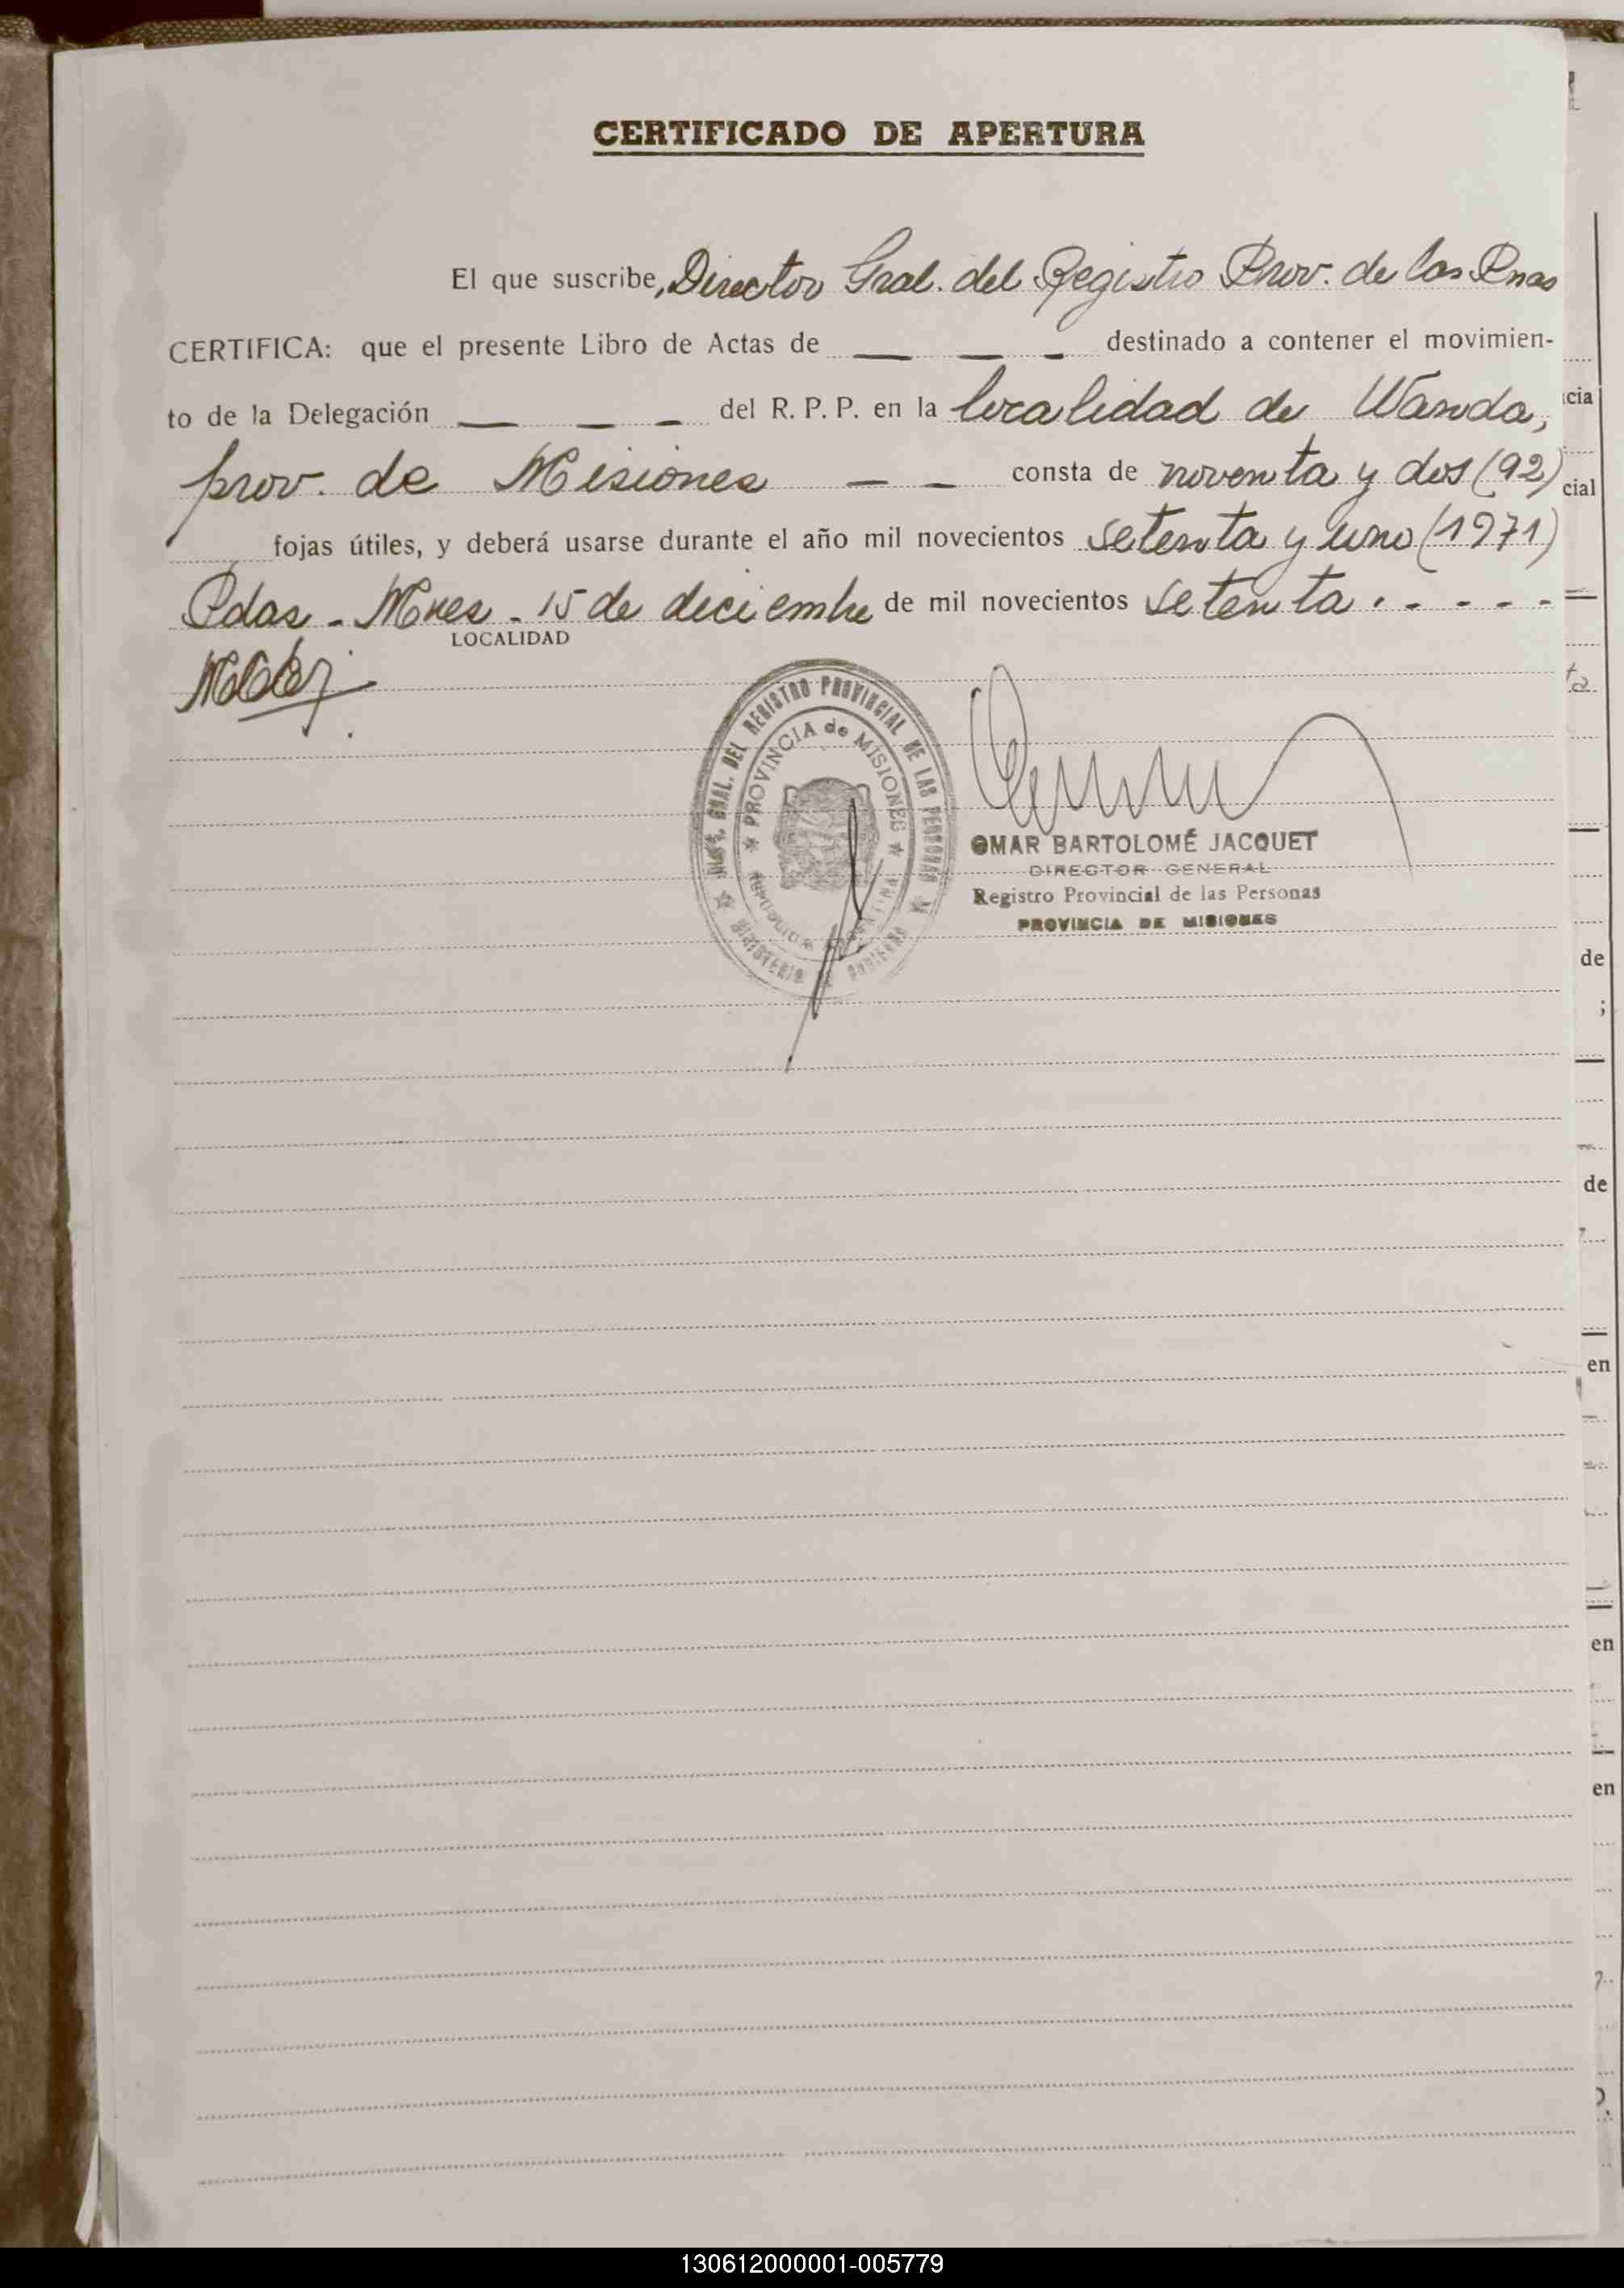 CERTIFICADO DE APERTURA
El que suscribe, Director Gral. del Registro Prov. de las Pnas
CERTIFICA: que el presente Libro de Actas de — — - destinado a contener el movimien-
to de la Delegación — — - del R. P. P. en la localidad de Wanda,
prov. de Misiones — — consta de noventa y dos (92)
fojas útiles, y deberá usarse durante el año mil novecientos setenta y uno (1971)
Pdas - Mnes - 15 de diciembre de mil novecientos setenta . - - - -
LOCALIDAD
GRAL. DEL REGISTRO PROVINCIAL DE LAS PERSONAS
PROVINCIA de MISIONES
REPUBLICA ARGENTINA
MINISTERIO GOBIERNO
OMAR BARTOLOMÉ JACQUET
DIRECTOR GENERAL
Registro Provincial de las Personas
PROVINCIA DE MISIONES
cia
cial
ta
de
;
de
en
en
en
130612000001-005779